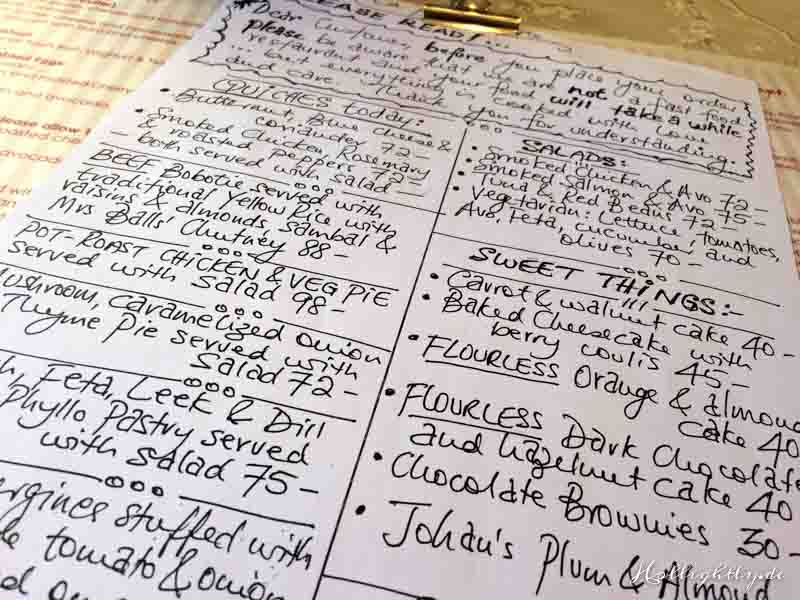 EASE READ!...
Dear Customer, before you place your order
please be aware that we are not a fast food
restaurant and your food will take a while
... but everything is cooked with love
and care. Thank you for understanding.
QUICHES today:
• Butternut, Blue cheese &
coriander 72-
• Smoked Chicken, Rosemary
& roasted peppers 72-
- both served with salad -
BEEF Bobotie served with
traditional Yellow Rice with
raisins & almonds, Sambal &
Mrs Balls' Chutney 88-
POT-ROAST CHICKEN & VEG PIE
served with Salad 98-
Mushroom, caramelized onion
Thyme Pie served with
Salad 72-
Feta, Leek & Dill
Phyllo Pastry served
with Salad 75-
ergines stuffed with
tomato & onion
SALADS:
• Smoked Chicken & Avo 72-
• Smoked Salmon & Avo 75-
• Tuna & Red Beans 72-
• Vegetarian: Lettuce, tomatoes,
Avo, Feta, cucumber and
olives 70-
SWEET THINGS:-
• Carrot & walnut cake 40-
• Baked Cheesecake with
berry coulis 45-
• FLOURLESS Orange & almond
cake 40
• FLOURLESS Dark Chocolate
and hazelnut cake 40
• Chocolate Brownies 30-
• Johan's Plum & Almond
Hollightly.de